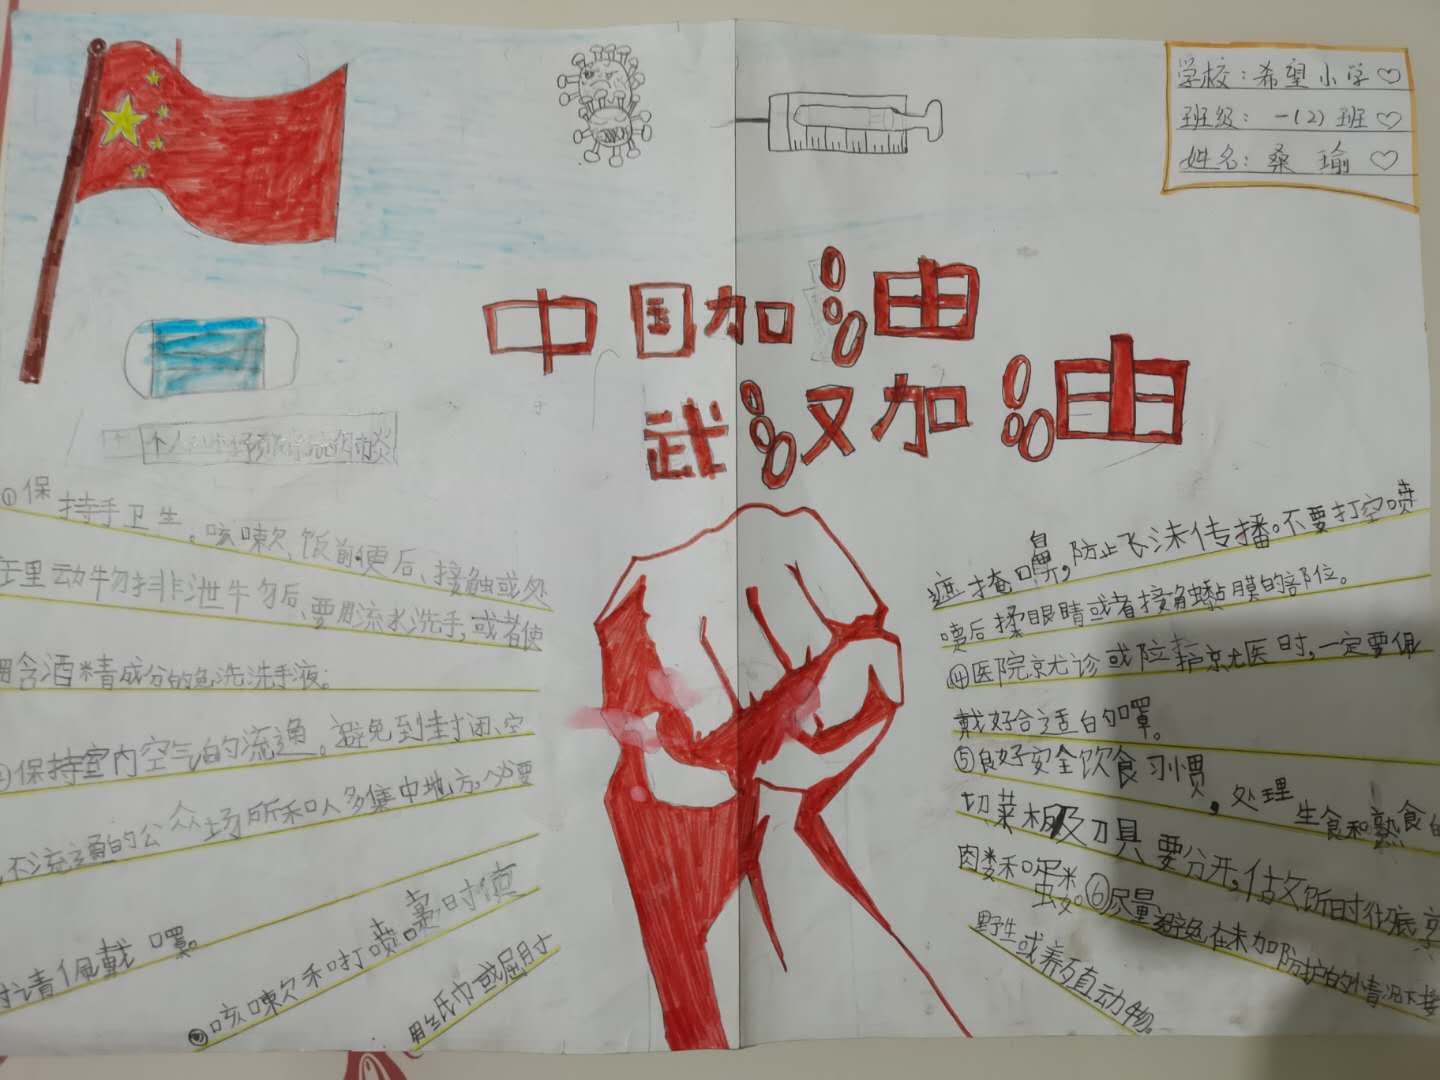 学校：希望小学
班级：一(2)班
姓名：桑瑜
中国加油
武汉加油
个人预防
①保持手卫生。咳嗽、饭前便后、接触或处
理动物排泄物后、要用流水洗手，或者使
用含酒精成分的免洗洗手液。
保持室内空气的流通。避免到封闭、空
不流通的公众场所和人多集中地方，必要
时请佩戴口罩。
③咳嗽和打喷嚏时使
用纸巾或屈肘
遮掩口鼻，防止飞沫传播。不要打空喷
嚏后揉眼睛或者接触黏膜的部位。
④医院就诊或陪护就医时，一定要佩
戴好合适的口罩。
⑤良好安全饮食习惯，处理生食和熟食的
切菜板及刀具要分开，做饭时彻底烹
肉类和蛋类。⑥尽量避免在未加防护的情况下接
野生或养殖动物。